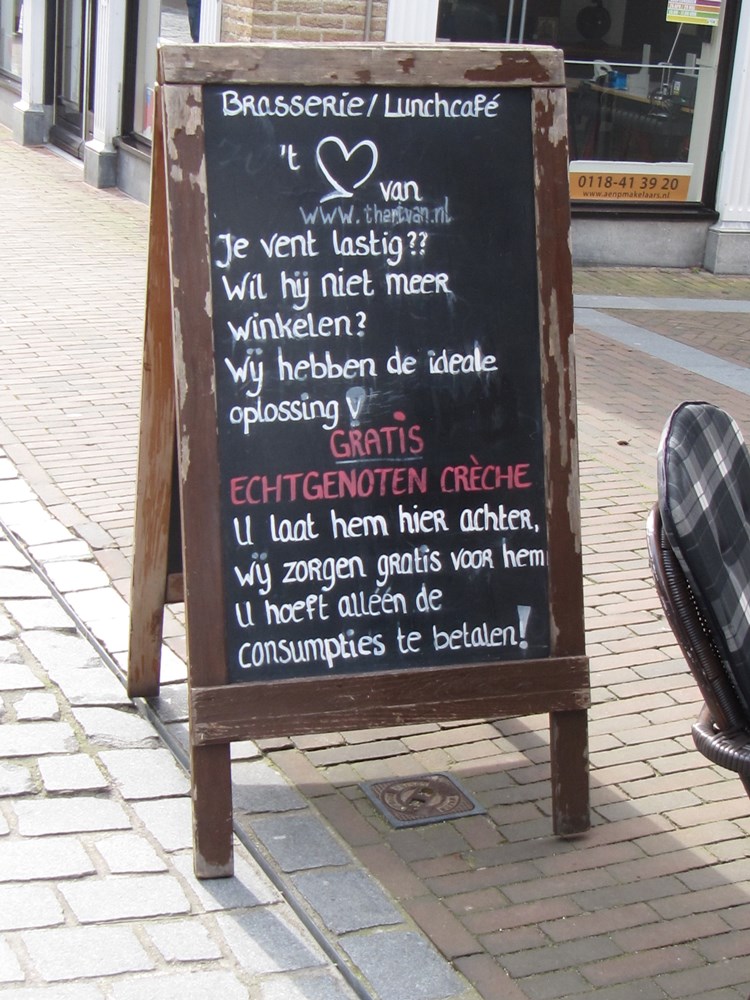 Brasserie/Lunchcafé
't van
www.thartvan.nl
Je vent lastig??
Wil hij niet meer
winkelen?
Wij hebben de ideale
oplossing!
GRATIS
ECHTGENOTEN CRÈCHE
U laat hem hier achter,
Wij zorgen gratis voor hem
U hoeft alléén de
consumpties te betalen!
0118-41 39 20
www.aenpmakelaars.nl